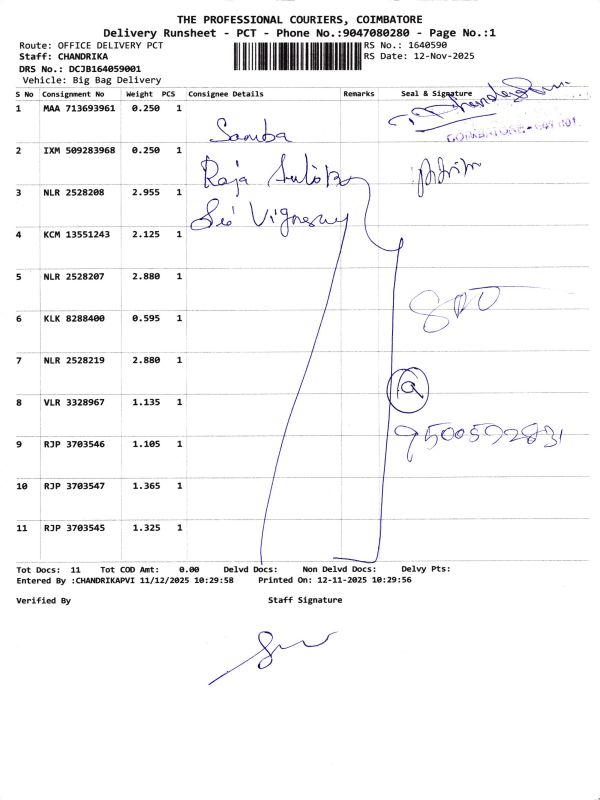 THE PROFESSIONAL COURIERS, COIMBATORE
Delivery Runsheet - PCT - Phone No.:9047080280 - Page No.:1
Route: OFFICE DELIVERY PCT
RS No.: 1640590
Staff: CHANDRIKA
RS Date: 12-Nov-2025
DRS No.: DCJB164059001
Vehicle: Big Bag Delivery
S No Consignment No Weight PCS Consignee Details Remarks Seal & Signature
1 MAA 713693961 0.250 1
COIMBATORE - 641 001
Samba
2 IXM 509283968 0.250 1
Raja
3 NLR 2528208 2.955 1
Sri Vignesay
4 KCM 13551243 2.125 1
5 NLR 2528207 2.880 1
6 KLK 8288400 0.595 1
7 NLR 2528219 2.880 1
8 VLR 3328967 1.135 1
9500592831
9 RJP 3703546 1.105 1
10 RJP 3703547 1.365 1
11 RJP 3703545 1.325 1
Tot Docs: 11 Tot COD Amt: 0.00 Delvd Docs: Non Delvd Docs: Delvy Pts:
Entered By :CHANDRIKAPVI 11/12/2025 10:29:58 Printed On: 12-11-2025 10:29:56
Verified By Staff Signature